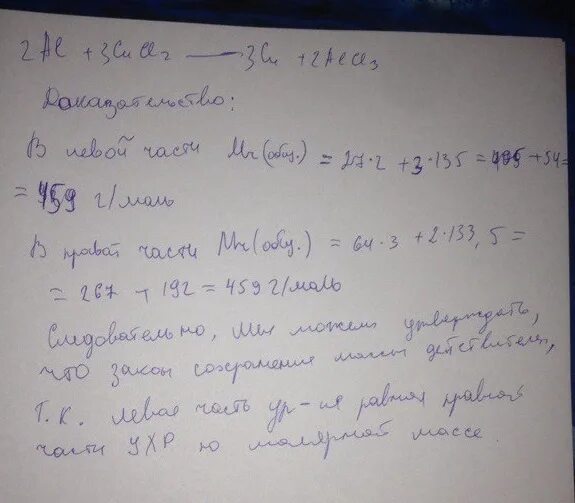 2Al + 3CuCl2 — 3Cu + 2AlCl3
Доказательство:
В левой части Mr(общ.) = 27·2 + 3·135 = 405 + 54 =
= 459 г/моль
В правой части Mr(общ.) = 64·3 + 2·133,5 =
= 267 + 192 = 459 г/моль
Следовательно, мы можем утверждать,
что закон сохранения массы действителен,
т.к. левая часть ур-ия равна правой
части УХР по молярной массе.